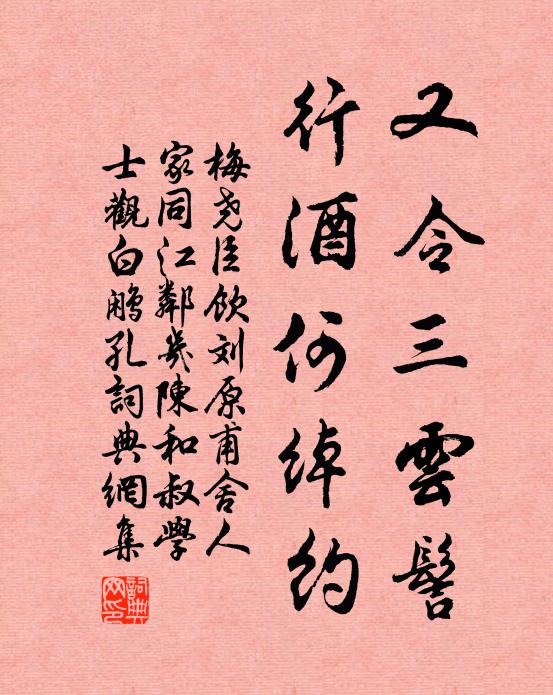 又令三雲髻
行酒何綽約
梅尧臣飲刘原甫舍人
家同江鄰幾陳和叔學
士觀白鷴孔詞典網集
詞典网印